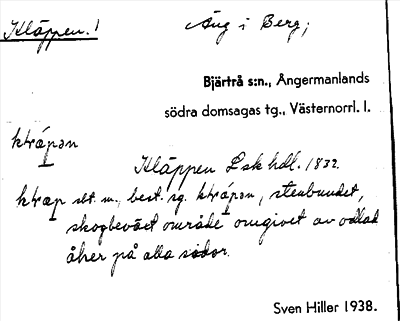 Kläppen. 1 Äng i Berg;
Bjärtrå s:n., Ångermanlands
södra domsagas tg., Västernorrl. l.
Kläppen Lsk hdl. 1832.
slt. m., best. sg. stenbundet,
skogbeväxt område omgivet av odlad
åker på alla sidor.
Sven Hiller 1938.